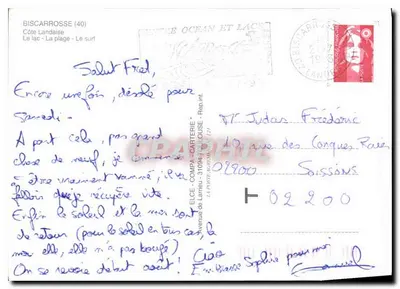 BISCARROSSE (40)
Côte Landaise
Le lac - La plage - Le surf
ENTRE OCEAN ET LACS
Salut Fred,
Encore une fois, désolé pour
Samedi -
A part cela, pas grand
chose de neuf, je commence
à être vraiment vanné, il va
falloir que je récupère vite.
Enfin le soleil et la mer sont
de retour (pour le soleil en tous cas, la
mer elle, elle n'a pas bougé)
On se revoie début août !
Ciao
Sophie pour moi
ELCE - COMPA "CARTERIE"
31094 TOULOUSE - Rep. int.
Mr Judas Frédéric
rue des Conques
02200 Soissons
T 02200